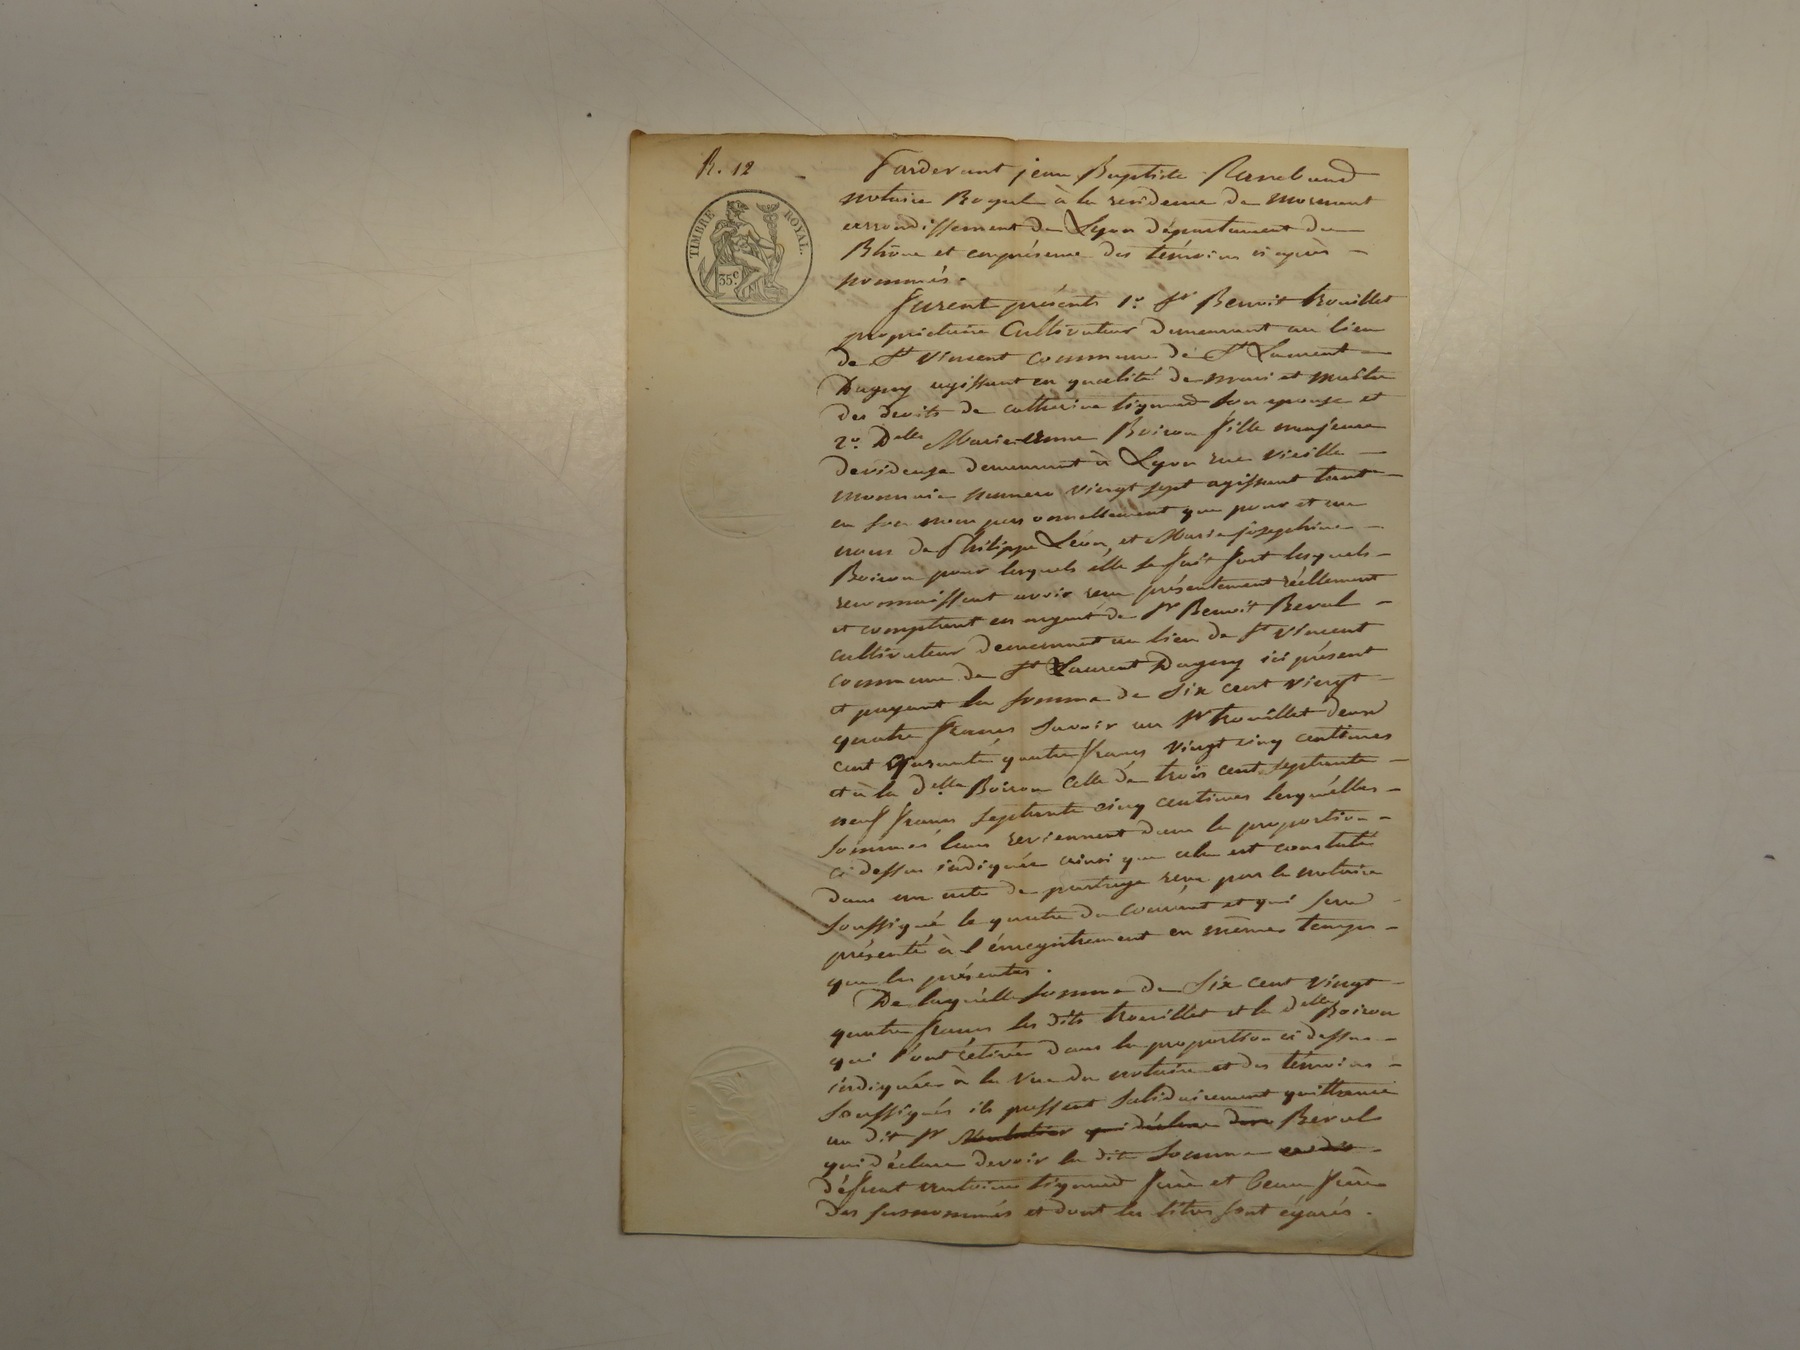 R. 12
TIMBRE ROYAL.
35c.
Pardevant jean Baptiste
notaire Royal à la residence de mornant
arrondissement de Lyon département du
Rhône et en présence des témoins ci après
nommés.
furent présents 1o. Sr Benoit trouillet
propriétaire Cultivateur demeurant au lieu
de St Vincent commune de St Laurent
Dagny agissant en qualité de mari et maître
des droits de catherine son epouse et
2o. Delle Marie anne Boiron fille majeure
devideuse demeurant à Lyon rue vieille
monnaie numero vingt sept agissant tant
en son nom personnellement que pour et au
nom de Philippe Léon, et Marie josephine
Boiron pour lesquels elle se fait fort lesquels
reconnaissent avoir reçu présentement réellement
et comptant en argent de Sr Benoit Beval
cultivateur demeurant au lieu de St Vincent
commune de St Laurent Dagny ici présent
et payant la somme de six cent vingt
quatre francs savoir au Sr trouillet deux
cent quarante quatre francs vingt cinq centimes
et à la delle Boiron celle de trois cent septante
neuf francs septante cinq centimes lesquelles
sommes leur reviennent dans la proportion
ci dessus indiquée ainsi que cela est constaté
dans un acte de partage reçu par le notaire
soussigné le quatre du courant et qui sera
présenté à l'énregistrement en mêmes temps
que les présentes.
De laquelle somme de six cent vingt
quatre francs les dits trouillet et la delle Boiron
qui l'ont retirée dans la proportion ci dessus
indiquée à la vue du notaire et des témoins
soussignés ils passent solidairement quittance
au dit Sr qui déclare Beval
qui déclare devoir la dite somme
défunt antoine frère et beau frère
des susnommés et dont les titres sont égarés.